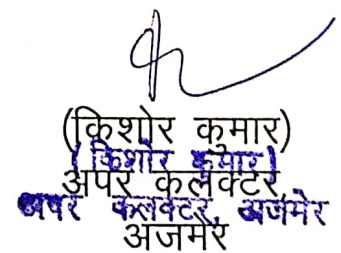 (किशोर कुमार)
(किशोर कुमार)
अपर कलेक्टर,
अपर कलेक्टर, अजमेर
अजमेर